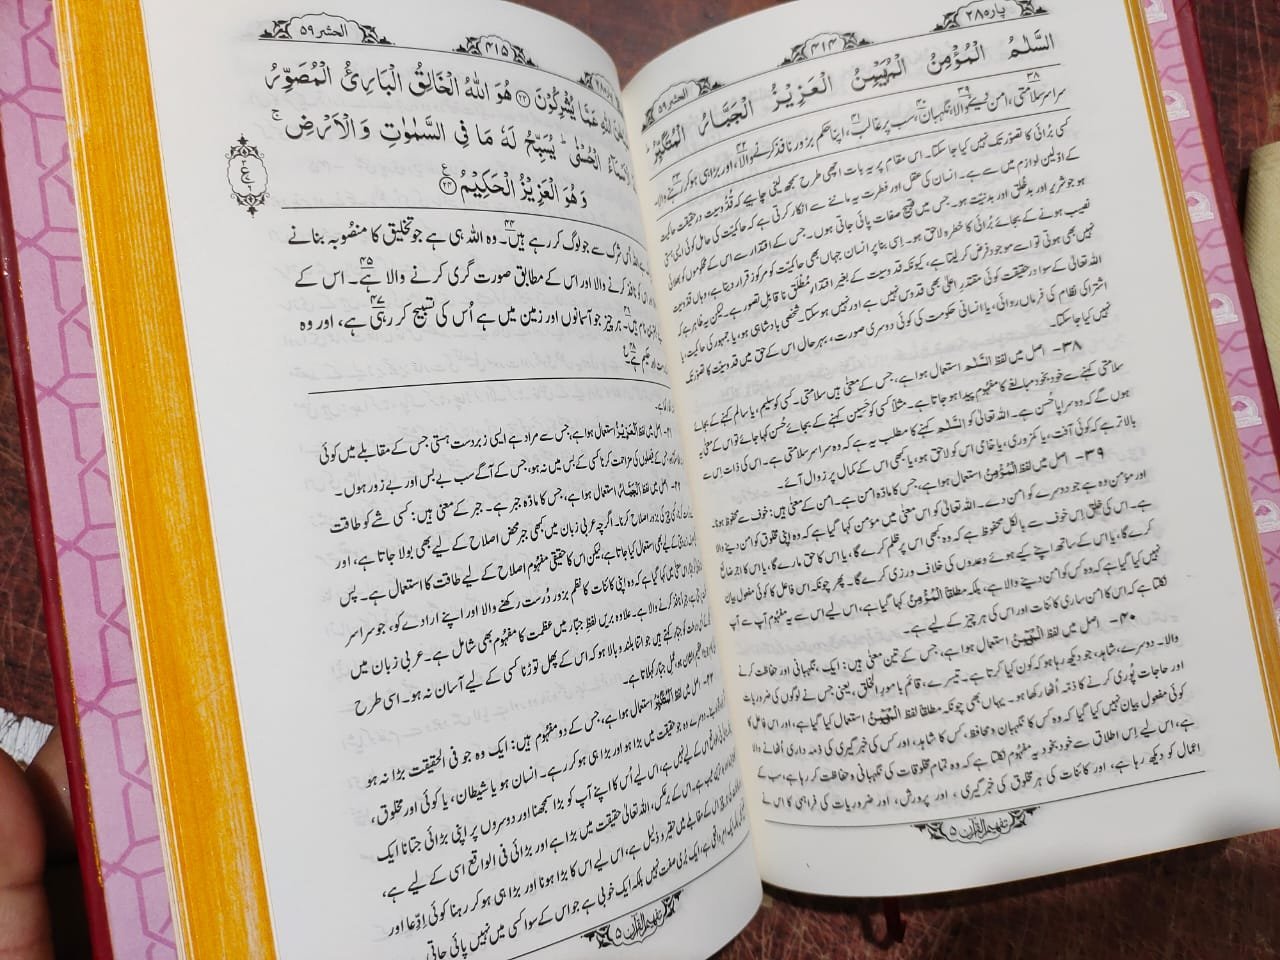 پارہ ۲۸
۴۱۴
الحشر ۵۹
السَّلٰمُ الْمُؤْمِنُ الْمُهَيْمِنُ الْعَزِيْزُ الْجَبَّارُ الْمُتَكَبِّرُ
سراسر سلامتی،۳۸ امن دینے والا،۳۹ نگہبان،۴۰ سب پر غالب،۴۱ اپنا حکم بزور نافذ کرنے والا،۴۲ اور بڑا ہی ہو کر رہنے والا۔۴۳
کسی بُرائی کا تصوّر تک نہیں کیا جا سکتا۔ اس مقام پر یہ بات اچھی طرح سمجھ لینی چاہیے کہ قُدّوسیت درحقیقت حاکمیت
کے اوّلین لوازم میں سے ہے۔ انسان کی عقل اور فطرت یہ ماننے سے انکار کرتی ہے کہ حاکمیت کی حامل کوئی ایسی ہستی
ہو جو شریر اور بدخُلق اور بدنیت ہو۔ جس میں قبیح صفات پائی جاتی ہوں۔ جس کے اقتدار سے اس کے محکوموں کو بھلائی
نصیب ہونے کے بجائے بُرائی کا خطرہ لاحق ہو۔ اِسی بنا پر انسان جہاں بھی حاکمیت کو مرکوز قرار دیتا ہے، وہاں قدوسیت
نہیں بھی ہوتی تو اسے موجود فرض کر لیتا ہے، کیونکہ قدوسیت کے بغیر اقتدارِ مُطلَق نا قابلِ تصور ہے۔ لیکن یہ ظاہر ہے کہ
اللہ تعالیٰ کے سوا درحقیقت کوئی مقتدرِ اعلیٰ بھی قدوس نہیں ہے اور نہیں ہو سکتا۔ شخصی بادشاہی ہو، یا جمہور کی حاکمیت، یا
اشتراکی نظام کی فرماں روائی، یا انسانی حکومت کی کوئی دوسری صورت، بہرحال اس کے حق میں قدوسیت کا تصور تک
نہیں کیا جا سکتا۔
۳۸- اصل میں لفظ السَّلٰم استعمال ہوا ہے، جس کے معنی ہیں سلامتی۔ کسی کو سلیم، یا سالم کہنے کے بجائے
سلامتی کہنے سے خود بخود مبالغے کا مفہوم پیدا ہو جاتا ہے۔ مثلاً کسی کو حَسین کہنے کے بجائے حُسن کہا جائے تو اس کے معنی یہ
ہوں گے کہ وہ سراپا حُسن ہے۔ اللہ تعالیٰ کو السَّلٰم کہنے کا مطلب یہ ہے کہ وہ سراسر سلامتی ہے۔ اس کی ذات اِس سے
بالاتر ہے کہ کوئی آفت، یا کمزوری، یا خامی اس کو لاحق ہو، یا کبھی اس کے کمال پر زوال آئے۔
۳۹- اصل میں لفظ المُؤْمِنُ استعمال ہوا ہے، جس کا مادّہ امن ہے۔ امن کے معنی ہیں: خوف سے محفوظ ہونا۔
اور مؤمن وہ ہے جو دوسرے کو امن دے۔ اللہ تعالیٰ کو اس معنی میں مؤمن کہا گیا ہے کہ وہ اپنی مخلوق کو امن دینے والا
ہے۔ اس کی خلق اِس خوف سے بالکل محفوظ ہے کہ وہ کبھی اس پر ظلم کرے گا، یا اس کا حق مارے گا، یا اس کا اجر ضائع
کرے گا، یا اس کے ساتھ اپنے کیے ہوئے وعدوں کی خلاف ورزی کرے گا۔ پھر چونکہ اس فاعل کا کوئی مفعول بیان
نہیں کیا گیا ہے کہ وہ کس کو امن دینے والا ہے، بلکہ مطلقاً المُؤْمِن کہا گیا ہے، اس لیے اس سے یہ مفہوم آپ سے آپ
نکلتا ہے کہ اس کا امن ساری کائنات اور اس کی ہر چیز کے لیے ہے۔
۴۰- اصل میں لفظ المُهَيْمِن استعمال ہوا ہے، جس کے تین معنی ہیں: ایک، نگہبانی اور حفاظت کرنے
والا۔ دوسرے، شاہد، جو دیکھ رہا ہو کہ کون کیا کرتا ہے۔ تیسرے، قائم بامورِ الخلق، یعنی جس نے لوگوں کی ضروریات
اور حاجات پُوری کرنے کا ذمّہ اُٹھا رکھا ہو۔ یہاں بھی چونکہ مطلقاً لفظ المُهَيْمِن استعمال کیا گیا ہے، اور اس فاعل کا
کوئی مفعول بیان نہیں کیا گیا کہ وہ کس کا نگہبان و محافظ، کس کا شاہد، اور کس کی خبر گیری کی ذمہ داری اُٹھانے والا
ہے، اس لیے اِس اطلاق سے خود بخود یہ مفہوم نکلتا ہے کہ وہ تمام مخلوقات کی نگہبانی و حفاظت کر رہا ہے، سب کے
اعمال کو دیکھ رہا ہے، اور کائنات کی ہر مخلوق کی خبر گیری، اور پرورش، اور ضروریات کی فراہمی کا اس نے
تفہیم القرآن ۵
۴۱۵
الحشر ۵۹
اللّٰهِ عَمَّا يُشْرِكُوْنَ ﴿۲۳﴾ هُوَ اللّٰهُ الْخَالِقُ الْبَارِئُ الْمُصَوِّرُ
الْحُسْنٰى ؕ يُسَبِّحُ لَهٗ مَا فِى السَّمٰوٰتِ وَالْاَرْضِ ۚ
وَهُوَ الْعَزِيْزُ الْحَكِيْمُ ﴿۲۴﴾
شرک سے جو لوگ کر رہے ہیں۔۴۴ وہ اللہ ہی ہے جو تخلیق کا منصُوبہ بنانے
کو نافذ کرنے والا اور اس کے مطابق صورت گری کرنے والا ہے۔۴۵ اس کے
ہیں۔ ہر چیز جو آسمانوں اور زمین میں ہے اُس کی تسبیح کر رہی ہے،۴۷ اور وہ
حکیم ہے۔۴۸
رکھا ہے۔
۴۱- اصل میں لفظ العَزِيْز استعمال ہوا ہے، جس سے مراد ہے ایسی زبردست ہستی جس کے مقابلے میں کوئی
جس کے فیصلوں کی مزاحمت کرنا کسی کے بس میں نہ ہو، جس کے آگے سب بے بس اور بے زور ہوں۔
۴۲- اصل میں لفظ الجَبَّار استعمال ہوا ہے، جس کا مادّہ جبر ہے۔ جبر کے معنی ہیں: کسی شے کو طاقت
کی بزور اصلاح کرنا۔ اگرچہ عربی زبان میں کبھی جبر محض اصلاح کے لیے بھی بولا جاتا ہے، اور
کے لیے بھی استعمال کیا جاتا ہے، لیکن اس کا حقیقی مفہوم اصلاح کے لیے طاقت کا استعمال ہے۔ پس
میں کہا گیا ہے کہ وہ اپنی کائنات کا نظم بزور دُرست رکھنے والا اور اپنے ارادے کو، جو سراسر
نافذ کرنے والا ہے۔ علاوہ بریں لفظ جبّار میں عظمت کا مفہوم بھی شامل ہے۔ عربی زبان میں
جبّار کہتے ہیں جو اتنا بلند و بالا ہو کہ اس کے پھل توڑنا کسی کے لیے آسان نہ ہو۔ اسی طرح
عظیم الشان ہو، عملِ جبار کہلاتا ہے۔
۴۳- اصل میں لفظ المُتَكَبِّر استعمال ہوا ہے، جس کے دو مفہوم ہیں: ایک وہ جو فی الحقیقت بڑا نہ ہو
دوسرے وہ جو حقیقت میں بڑا ہو اور بڑا ہی ہو کر رہے۔ انسان ہو یا شیطان، یا کوئی اور مخلوق،
نہیں ہے، اس لیے اُس کا اپنے آپ کو بڑا سمجھنا اور دوسروں پر اپنی بڑائی جتانا ایک
عیب ہے۔ اس کے برعکس، اللہ تعالیٰ حقیقت میں بڑا ہے اور بڑائی فی الواقع اسی کے لیے ہے،
اس کے مقابلے میں حقیر و ذلیل ہے، اس لیے اس کا بڑا ہونا اور بڑا ہی ہو کر رہنا کوئی ادِّعا اور
ایک بُری صفت نہیں بلکہ ایک خوبی ہے جو اس کے سوا کسی میں نہیں پائی جاتی
تفہیم القرآن ۵